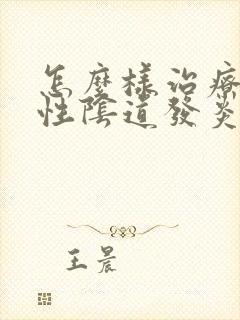 怎麼樣治療
性陰道發炎
王晨